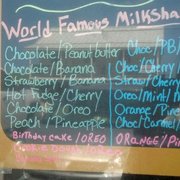 World Famous Milksha
Chocolate/Peanut butter Choc/PB/
Chocolate/Banana Choc/Cherry/
Strawberry/Banana Straw/Cherry
Hot Fudge/Cherry Oreo/Mint/
Chocolate/Oreo Orange/Pin
Peach/Pineapple Choc/Carmel/
Birthday cake/OREO ORANGE/Pi
COOKIE DOUGH